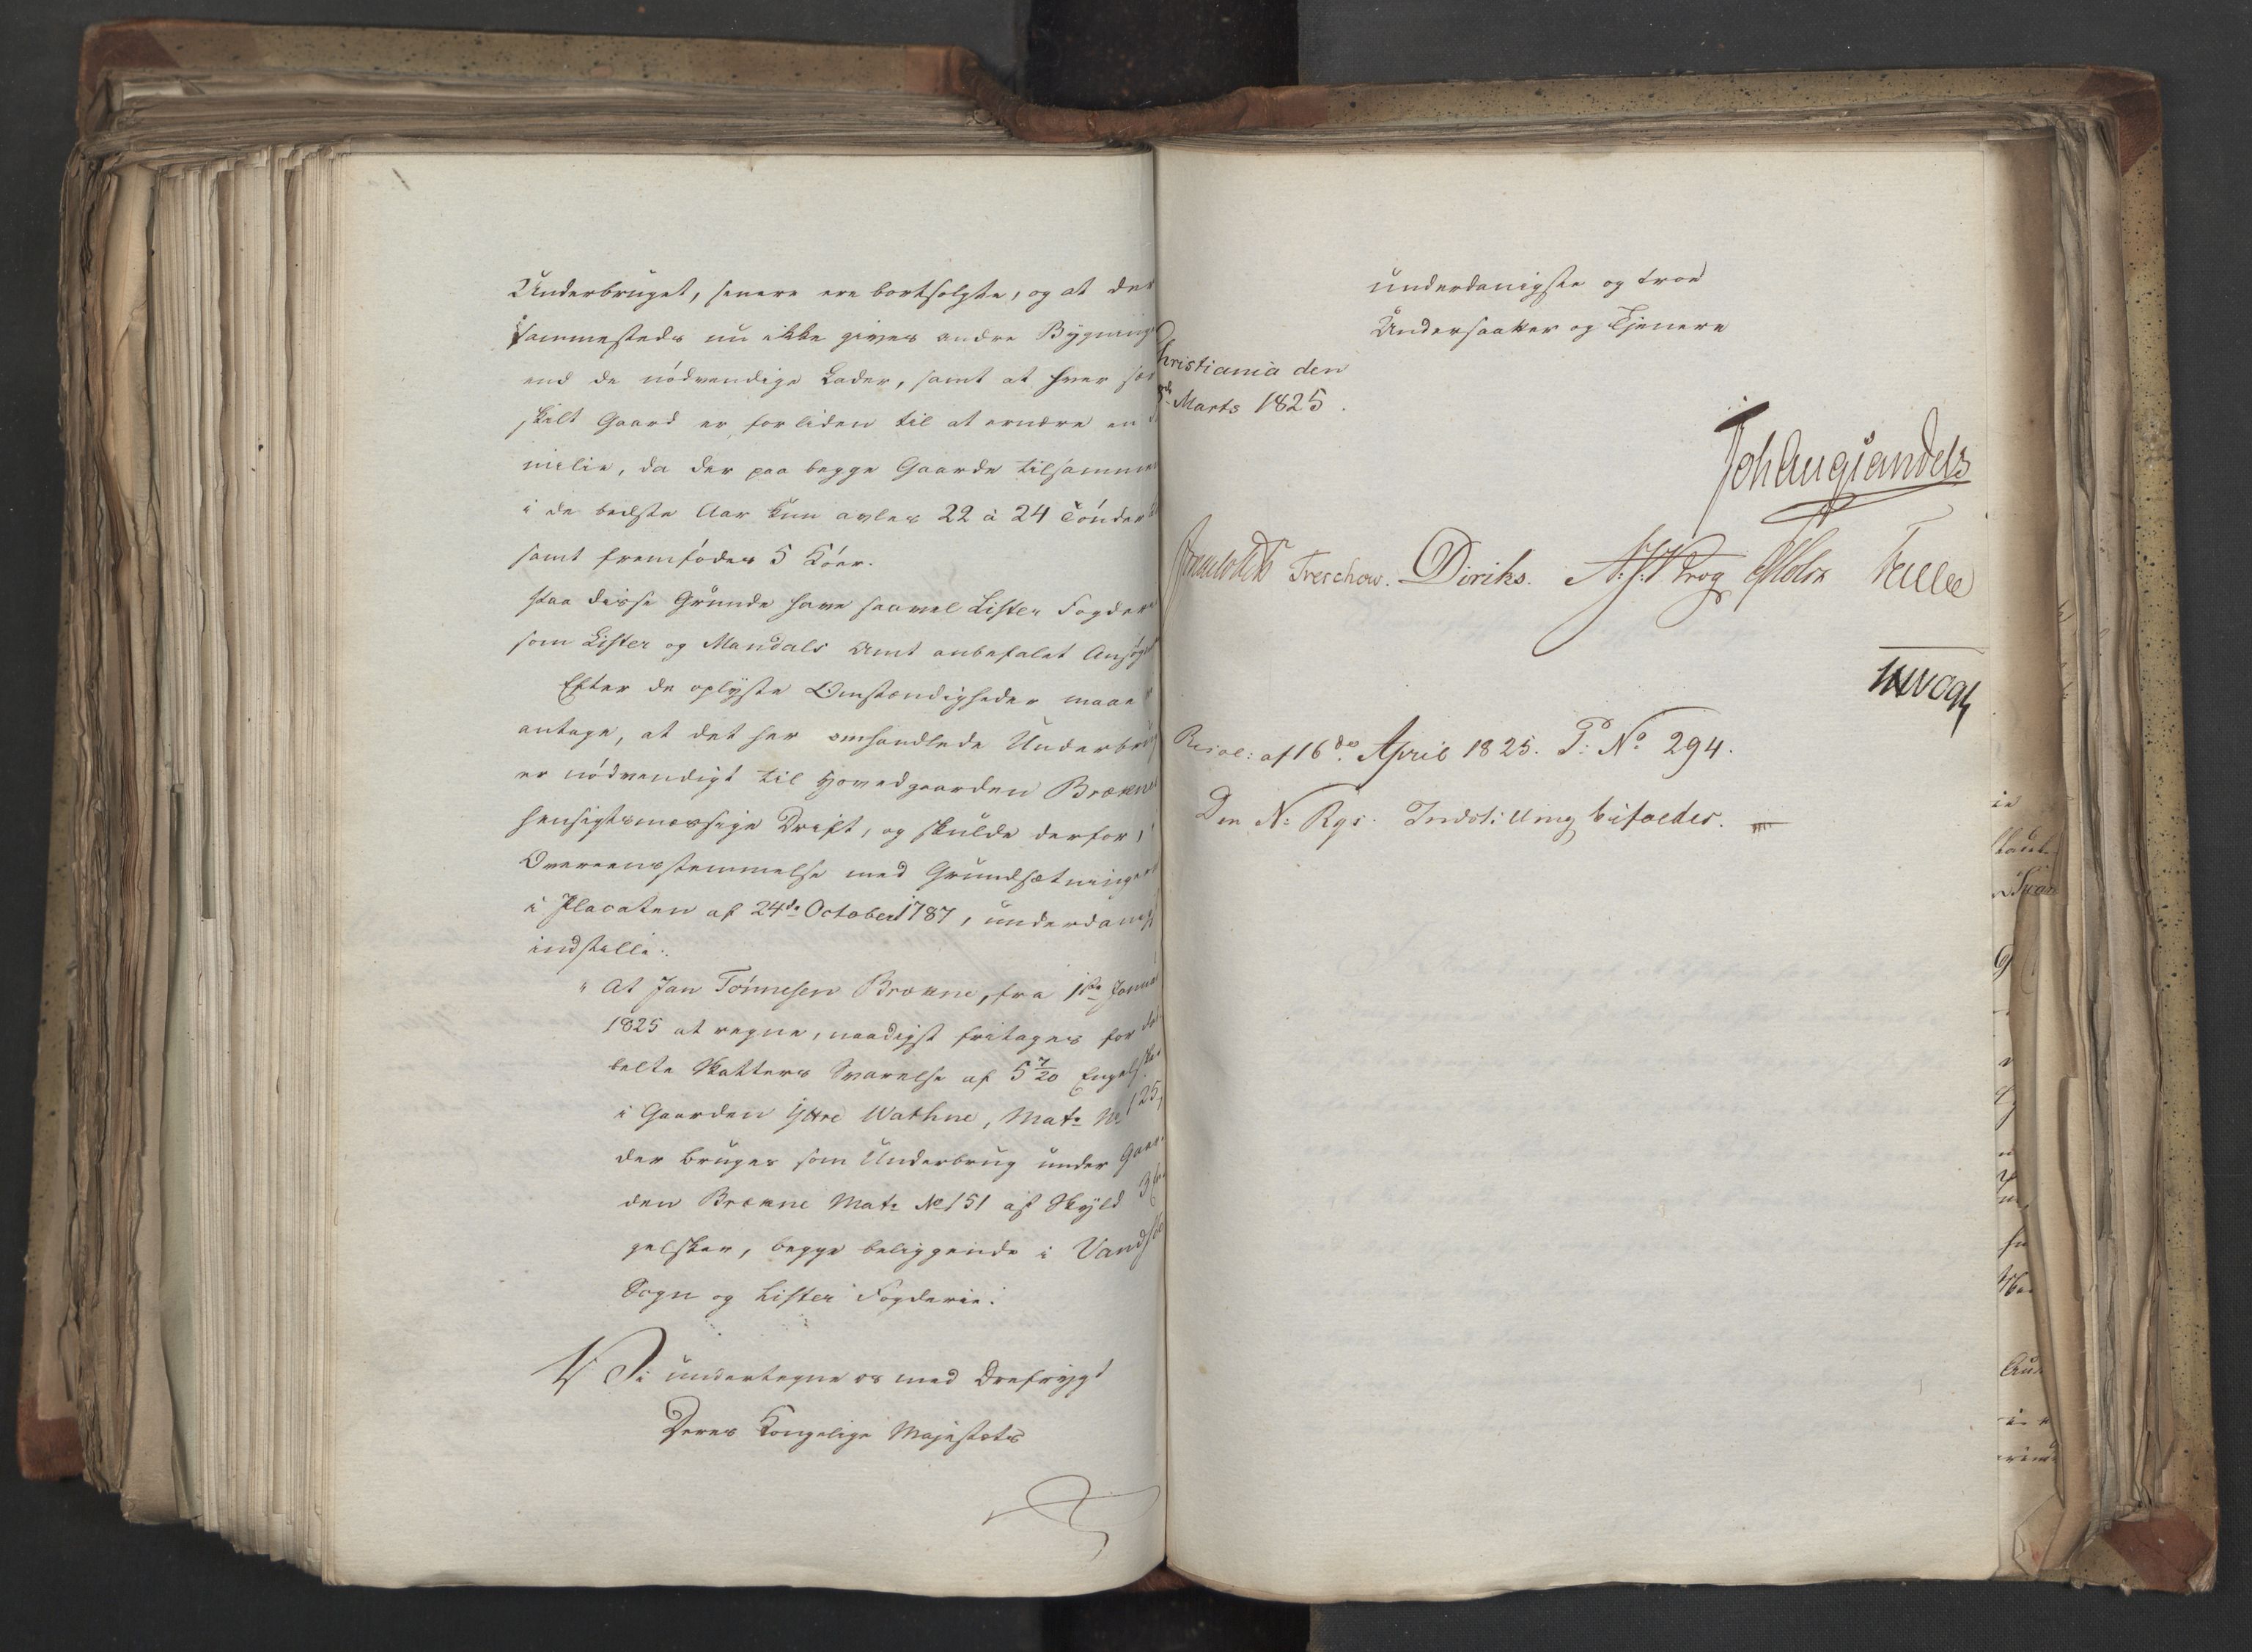 Underbruget, senere ere bortsolgte, og at der
sammesteds nu ikke gives andre Bygning
end de nödvendige Lader, samt at hver sær
skilt Gaard er for liden til at ernære en
milie, da der paa begge Gaarde tilsammen
i de bedste Aar kun avles 22 à 24 Tönder
samt fremfödes 5 Köer.
Paa disse Grunde have saavel Lister Fogderi
som Lister og Mandals Amt anbefalet Ansøg
Efter de oplyste Omstændigheder maae
antage, at det her omhandlede Underbrug
er nödvendigt til Hovedgaarden Brækne
hensigtsmæssige Drift, og skulde derfor i
Overeensstemmelse med Grundsætningen
i Placaten af 24de October 1787, underdanigst
indstille:
"At Jan Tönnesen Brækne, fra 1ste Januar
1825 at regne, naadigst fritages for dob
belte Skatters Svarelse af 5 7/20 Engelsker
i Gaarden Ytre Wathne, Matr No 125,
der bruges som Underbrug under Gaar
den Brækne Matr No 151 af Skyld 3 En
gelsker, begge beliggende i Vandsö
Sogn og Lister Fogderie.
Vi undertegne os med Ærefrygt
Deres Kongelige Majestæts
underdanigste og troe
Undersaatter og Tjenere
Christiania den
Marts 1825.
Joh Aug Sandels
Treschow. Diriks. Krog Holst Fasting
Resol: af 16de April 1825. P: No 294.
Den N: Rgs. Indstilling bifaldes.